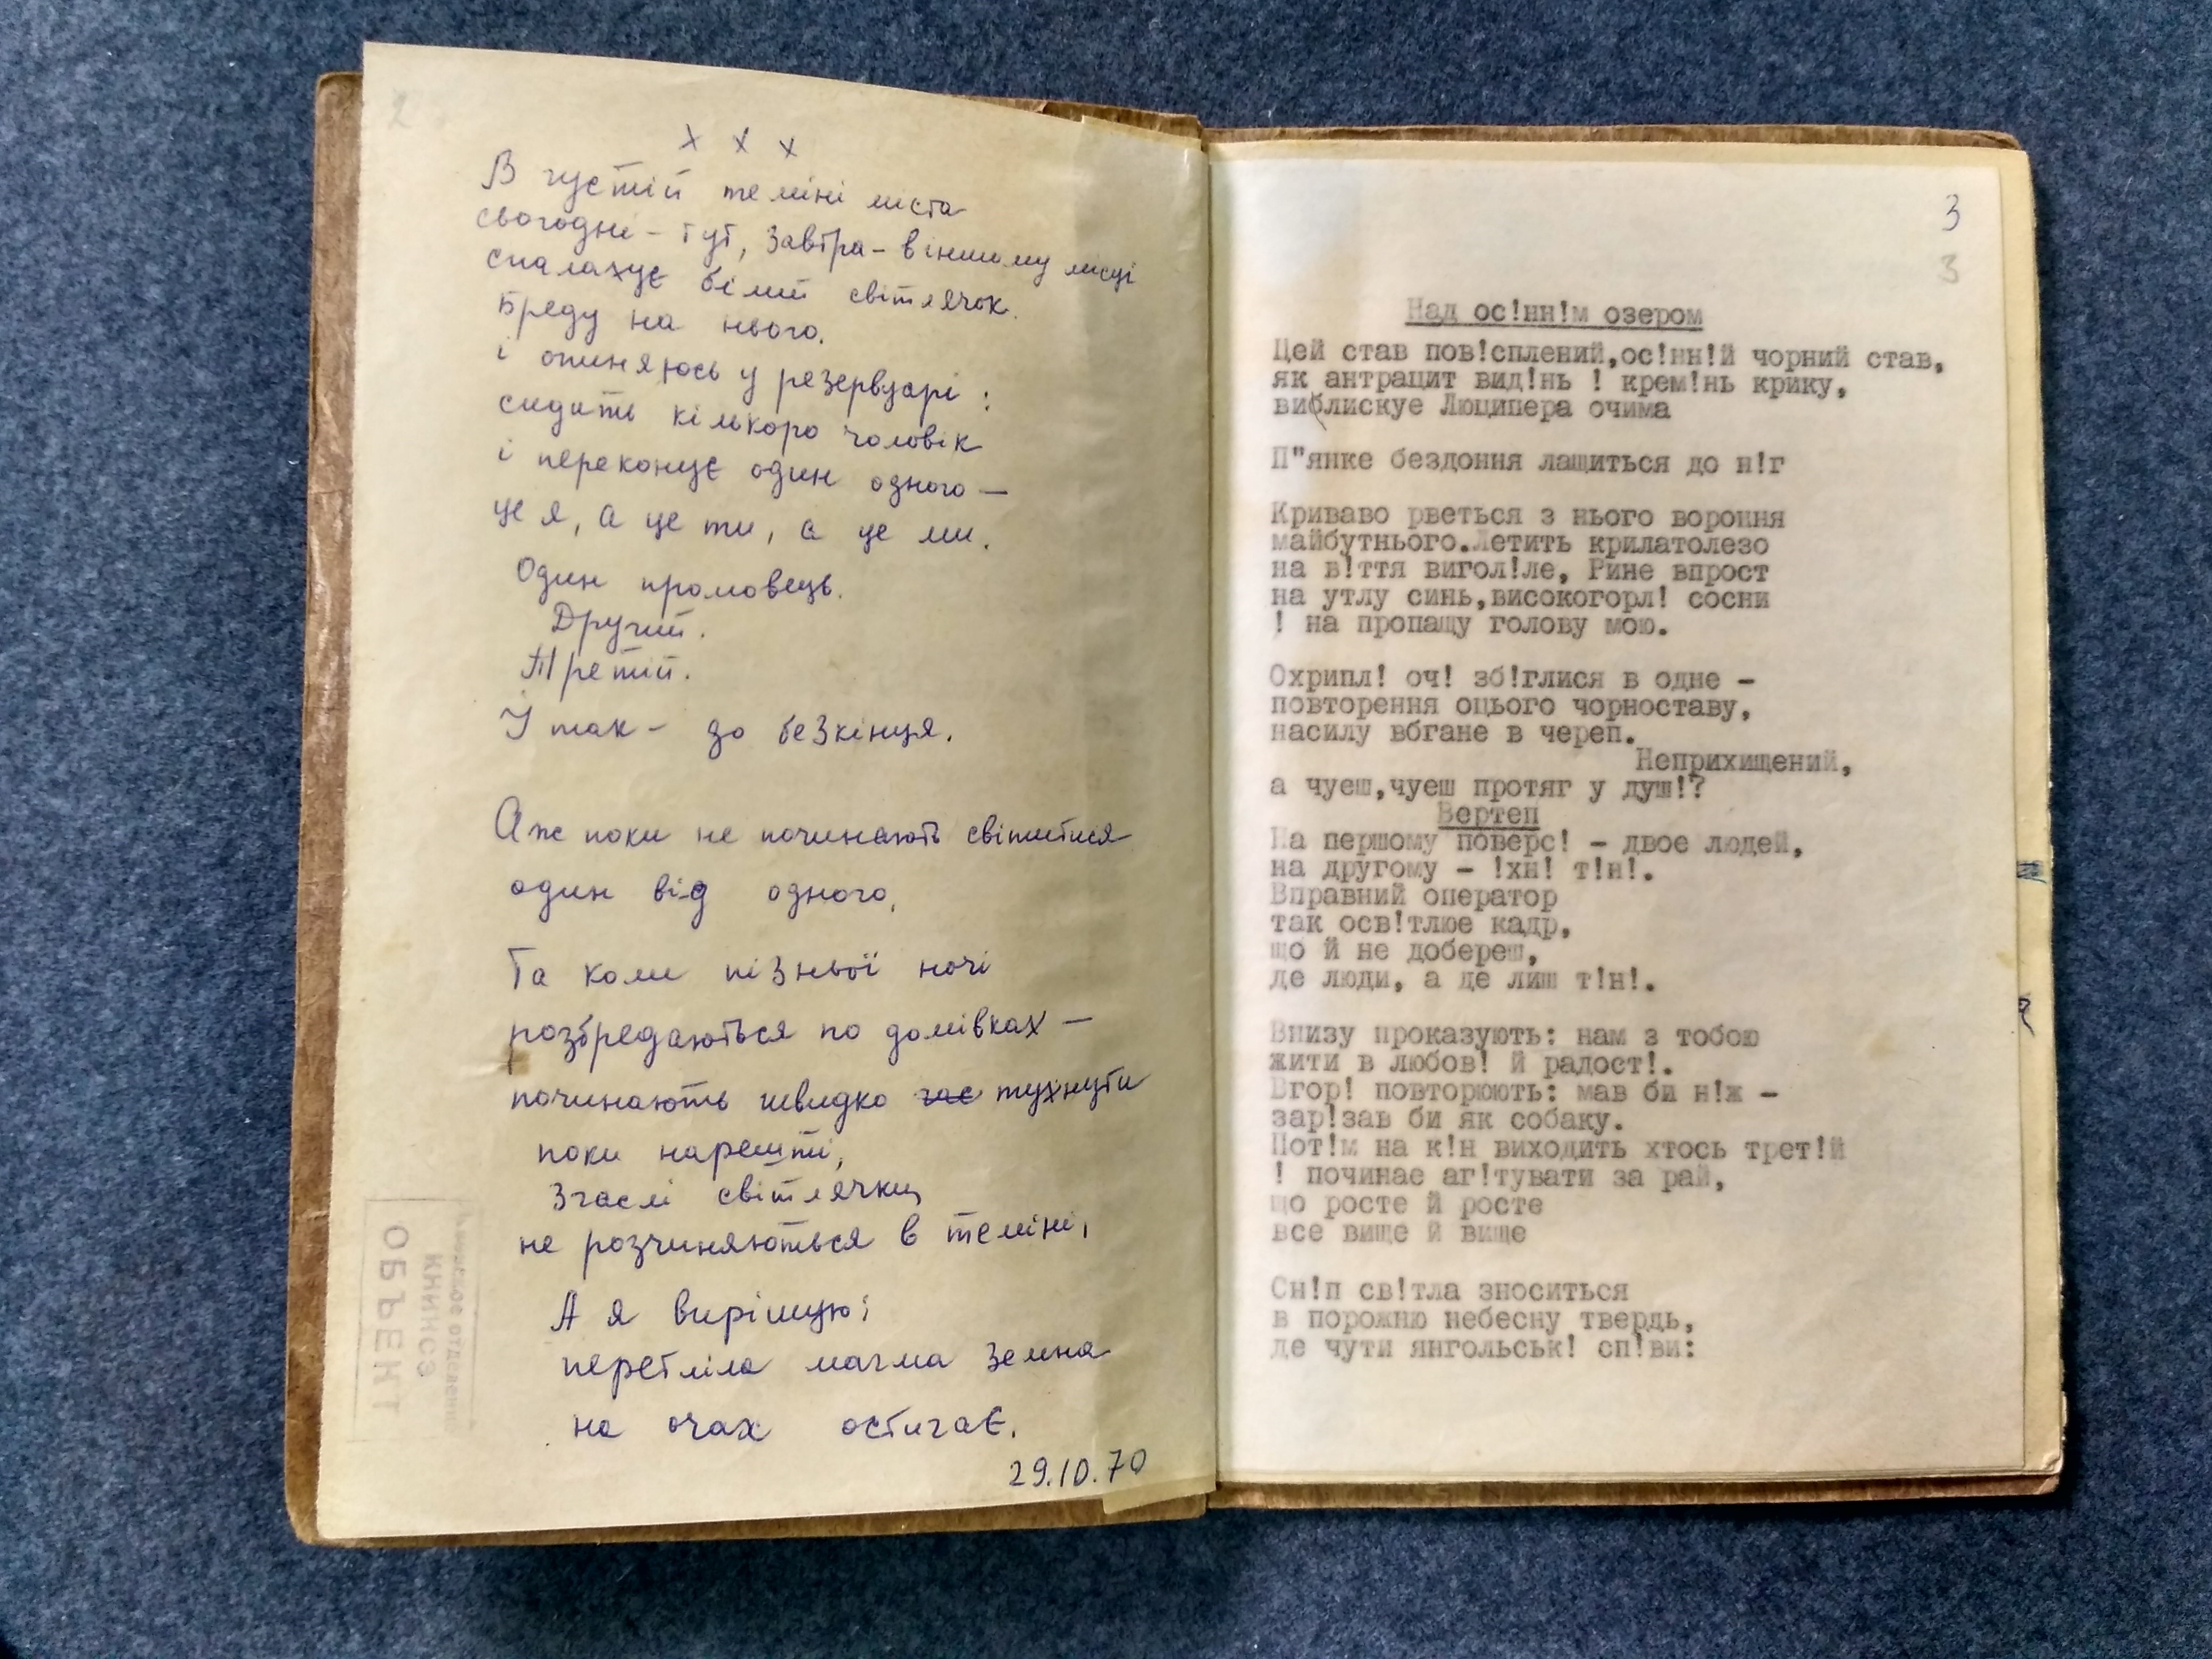 2
х х х
В густій теміні міста
сьогодні – тут, завтра – в іншому місці
спалахує білий світлячок.
Бреду на нього.
і опиняюсь у резервуарі:
сидить кількоро чоловік
і переконує один одного —
це я, а це ти, а це ми.
Один промовець.
Другий.
Третій.
І так – до безкінця.
Аж поки не починають світитися
один від одного,
Та коли пізньої ночі
розбредаються по домівках —
починають швидко гас тухнути
поки нарешті,
Згаслі світлячки,
не розчиняються в теміні,
А я вирішую:
перетліла магма земна
на очах остигає.
29.10.70
отделение
КНИИСЭ
ОБЪЕКТ
3
3
Над ос!нн!м озером
Цей став пов!сплений,ос!нн!й чорний став,
як антрацит вид!нь ! крем!нь крику,
виблискуе Люципера очима
П"янке бездоння лащиться до н!г
Криваво рветься з нього вороння
майбутнього.Летить крилатолезо
на в!ття вигол!ле, Рине впрост
на утлу синь,високогорл! сосни
! на пропащу голову мою.
Охрипл! оч! зб!глися в одне –
повторення оцього чорноставу,
насилу вбгане в череп.
Неприхищений,
а чуеш,чуеш протяг у душ!?
Вертеп
На першому поверс! – двое людей,
на другому – !хн! т!н!.
Вправний оператор
так осв!тлюе кадр,
що й не добереш,
де люди, а де лиш т!н!.
Внизу проказують: нам з тобою
жити в любов! й радост!.
Вгор! повторюють: мав би н!ж –
зар!зав би як собаку.
Пот!м на к!н виходить хтось трет!й
! починае аг!тувати за рай,
що росте й росте
все вище й вище
Сн!п св!тла зноситься
в порожню небесну твердь,
де чути янгольськ! сп!ви: